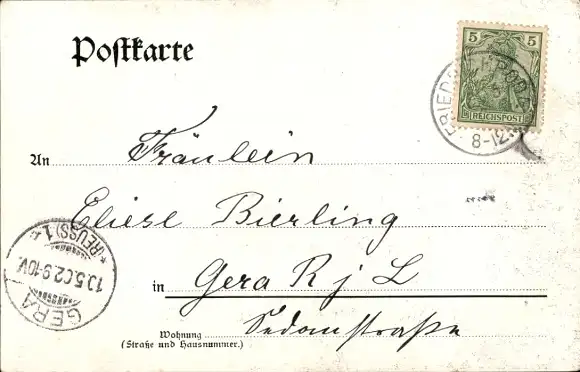 Postkarte
5 5
REICHSPOST
8-12
An Fräulein
Eliese Bierling
in Gera R j L
Wohnung Sedanstraße
(Straße und Hausnummer.)
GERA
10.5.02.9-10V.
* (REUSS) 1 *